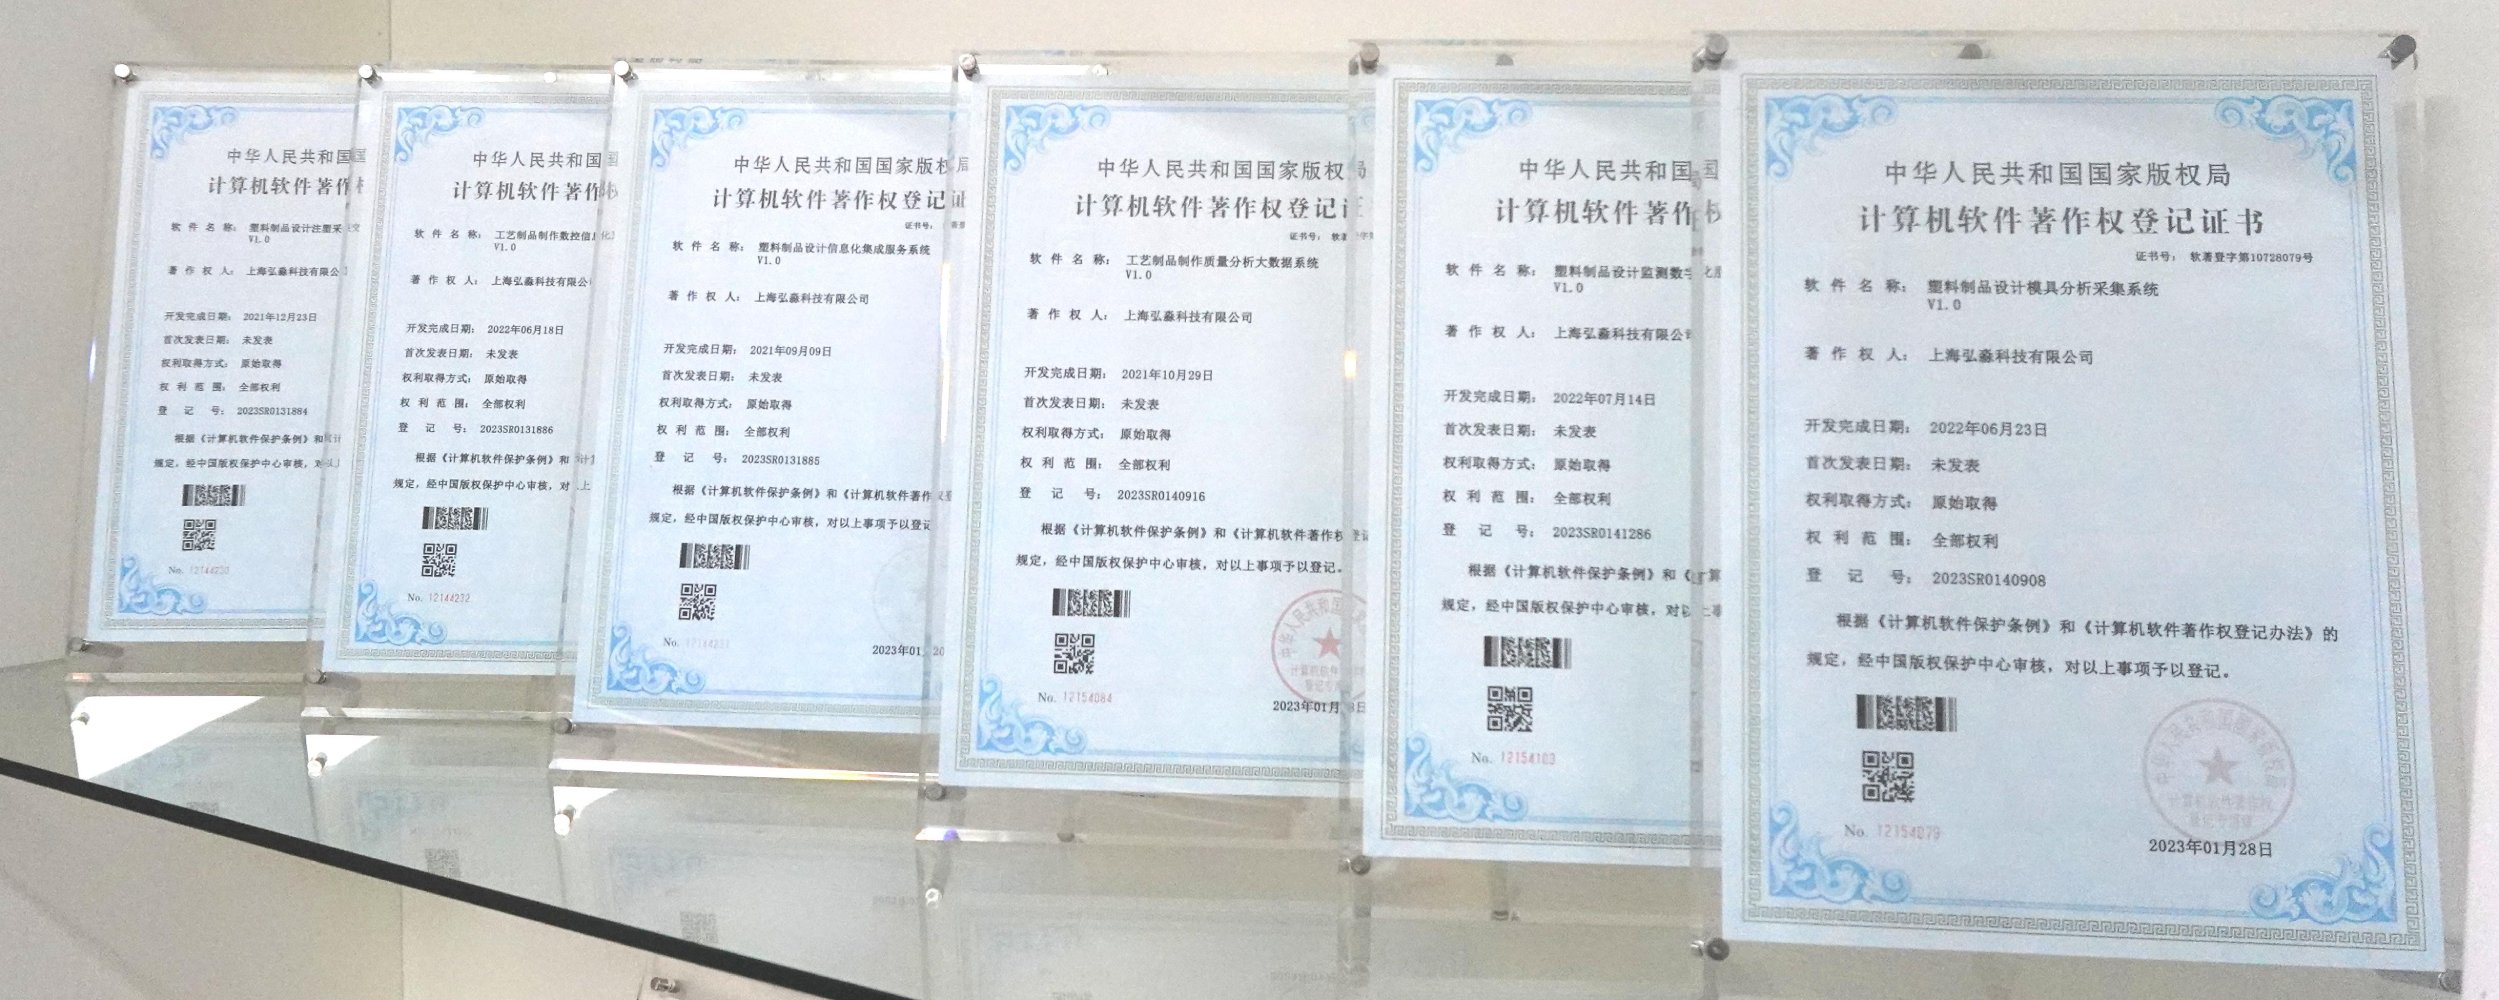 中华人民共和国国
计算机软件著作权
软件名称： 塑料制品设计注塑采
V1.0
著作权人： 上海弘淼科技有限公
开发完成日期： 2021年12月23日
首次发表日期： 未发表
权利取得方式： 原始取得
权利范围： 全部权利
登记号： 2023SR0131884
根据《计算机软件保护条例》和
规定，经中国版权保护中心审核，对以
No. 12144230
中华人民共和国国
计算机软件著作权
软件名称： 工艺制品制作数控信
V1.0
著作权人： 上海弘淼科技有限公
开发完成日期： 2022年06月18日
首次发表日期： 未发表
权利取得方式： 原始取得
权利范围： 全部权利
登记号： 2023SR0131886
根据《计算机软件保护条例》和
规定，经中国版权保护中心审核，对
No. 12144232
中华人民共和国国家版权局
计算机软件著作权登记证
证书号：
软件名称： 塑料制品设计信息化集成服务系统
V1.0
著作权人： 上海弘淼科技有限公司
开发完成日期： 2021年09月09日
首次发表日期： 未发表
权利取得方式： 原始取得
权利范围： 全部权利
登记号： 2023SR0131885
根据《计算机软件保护条例》和《计算机软件著作权登
规定，经中国版权保护中心审核，对以上事项予以登记
No. 12144231
2023年01月20
中华人民共和国国家版权局
计算机软件著作权登记证
证书号： 软著登字第
软件名称： 工艺制品制作质量分析大数据系统
V1.0
著作权人： 上海弘淼科技有限公司
开发完成日期： 2021年10月29日
首次发表日期： 未发表
权利取得方式： 原始取得
权利范围： 全部权利
登记号： 2023SR0140916
根据《计算机软件保护条例》和《计算机软件著作权登记
规定，经中国版权保护中心审核，对以上事项予以登记。
No. 12154084
2023年01月28日
中华人民共和国国
计算机软件著作权
软件名称： 塑料制品设计监测数字化
V1.0
著作权人： 上海弘淼科技有限公司
开发完成日期： 2022年07月14日
首次发表日期： 未发表
权利取得方式： 原始取得
权利范围： 全部权利
登记号： 2023SR0141286
根据《计算机软件保护条例》和《计算
规定，经中国版权保护中心审核，对以上事
No. 12154103
中华人民共和国国家版权局
计算机软件著作权登记证书
证书号： 软著登字第10728079号
软件名称： 塑料制品设计模具分析采集系统
V1.0
著作权人： 上海弘淼科技有限公司
开发完成日期： 2022年06月23日
首次发表日期： 未发表
权利取得方式： 原始取得
权利范围： 全部权利
登记号： 2023SR0140908
根据《计算机软件保护条例》和《计算机软件著作权登记办法》的
规定，经中国版权保护中心审核，对以上事项予以登记。
中华人民共和国国家版权局
计算机软件著作权
登记专用章
No. 12154079
2023年01月28日